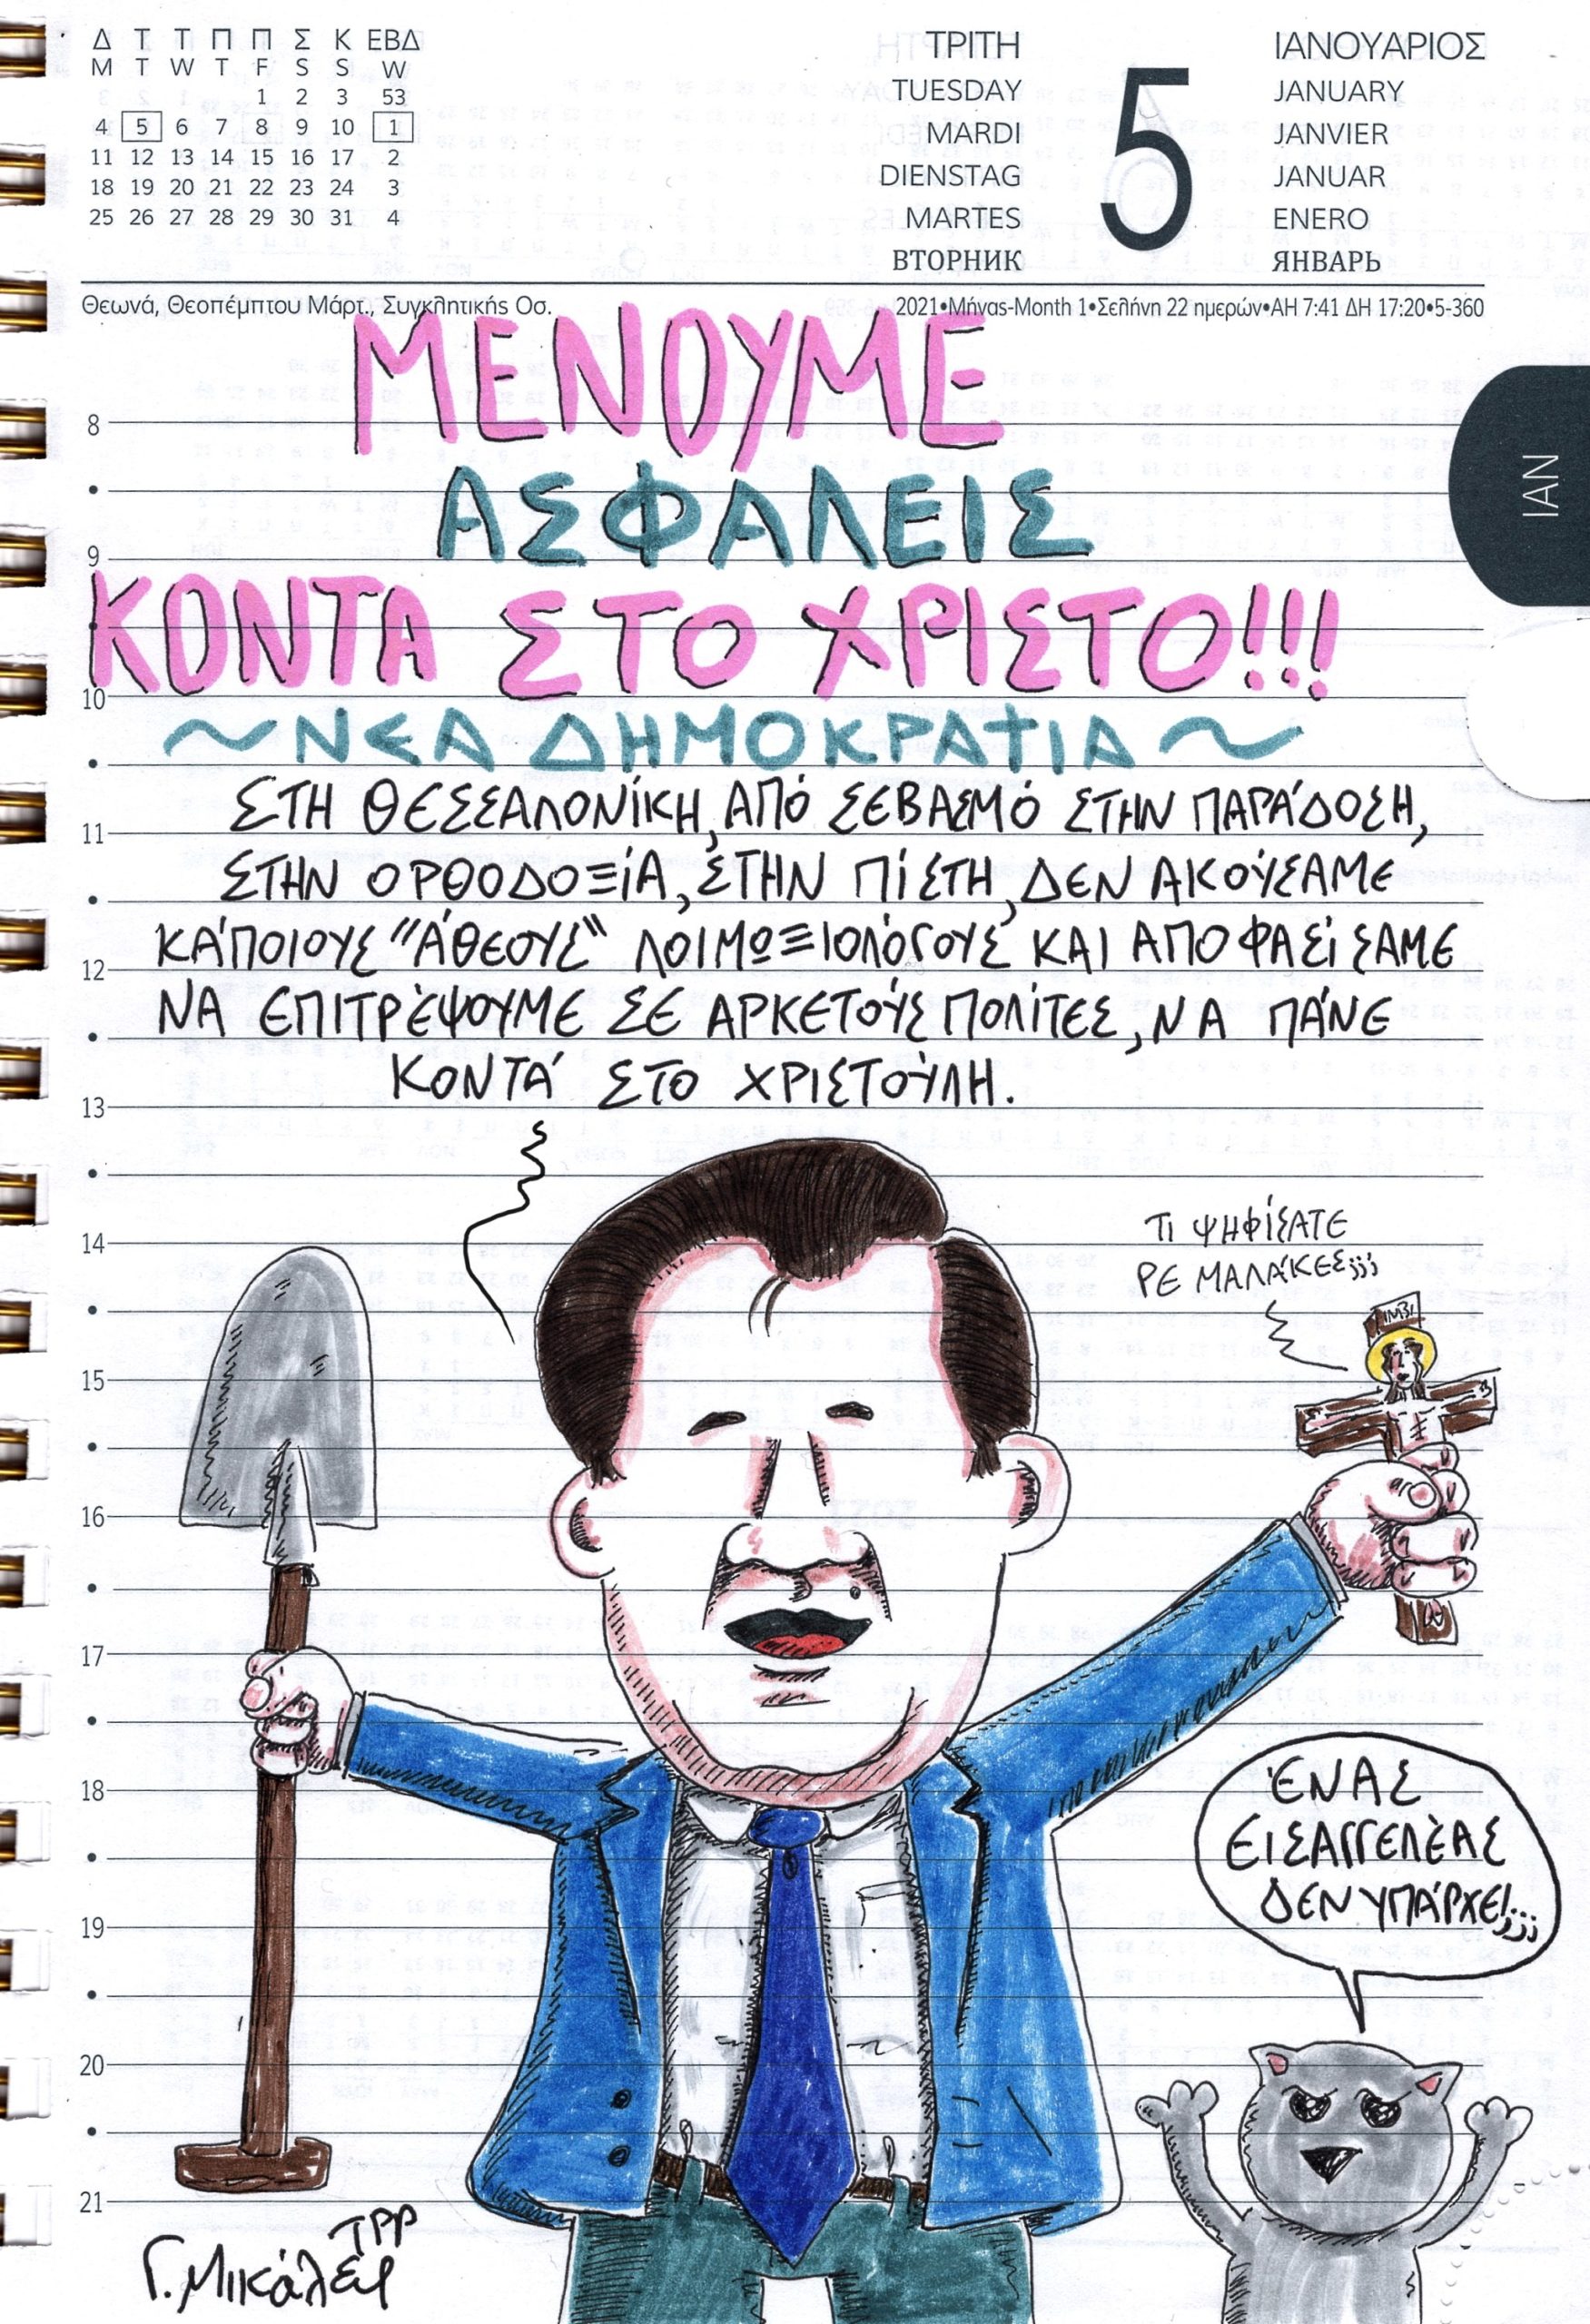 Δ Τ Τ Π Π Σ Κ ΕΒΔ
M T W T F S S W
1 2 3 53
4 5 6 7 8 9 10 1
11 12 13 14 15 16 17 2
18 19 20 21 22 23 24 3
25 26 27 28 29 30 31 4
ΤΡΙΤΗ
TUESDAY
MARDI
DIENSTAG
MARTES
ВТОРНИК
5
ΙΑΝΟΥΑΡΙΟΣ
JANUARY
JANVIER
JANUAR
ENERO
ЯНВАРЬ
Θεωνά, Θεοπέμπτου Μάρτ., Συγκλητικής Οσ.
2021•Μήνας-Month 1•Σελήνη 22 ημερών•ΑΗ 7:41 ΔΗ 17:20•5-360
ΙΑΝ
ΜΕΝΟΥΜΕ
ΑΣΦΑΛΕΙΣ
ΚΟΝΤΑ ΣΤΟ ΧΡΙΣΤΟ!!!
~ΝΕΑ ΔΗΜΟΚΡΑΤΙΑ~
ΣΤΗ ΘΕΣΣΑΛΟΝΊΚΗ, ΑΠΌ ΣΕΒΑΣΜΌ ΣΤΗΝ ΠΑΡΆΔΟΣΗ,
ΣΤΗΝ ΟΡΘΟΔΟΞΊΑ, ΣΤΗΝ ΠΊΣΤΗ, ΔΕΝ ΑΚΟΎΣΑΜΕ
ΚΆΠΟΙΟΥΣ "ΆΘΕΟΥΣ" ΛΟΙΜΩΞΙΟΛΌΓΟΥΣ ΚΑΙ ΑΠΟΦΑΣΊΣΑΜΕ
ΝΑ ΕΠΙΤΡΈΨΟΥΜΕ ΣΕ ΑΡΚΕΤΟΎΣ ΠΟΛΊΤΕΣ, ΝΑ ΠΆΝΕ
ΚΟΝΤΆ ΣΤΟ ΧΡΙΣΤΟΎΛΗ.
8
9
10
11
12
13
14
15
16
17
18
19
20
21
ΤΙ ΨΗΦΊΣΑΤΕ
ΡΕ ΜΑΛΆΚΕΣ;;;
ΙΝΒΙ
ΈΝΑΣ
ΕΙΣΑΓΓΕΛΈΑΣ
ΔΕΝ ΥΠΆΡΧΕΙ;;;
ΤΡΡ
Γ. Μικάλεφ